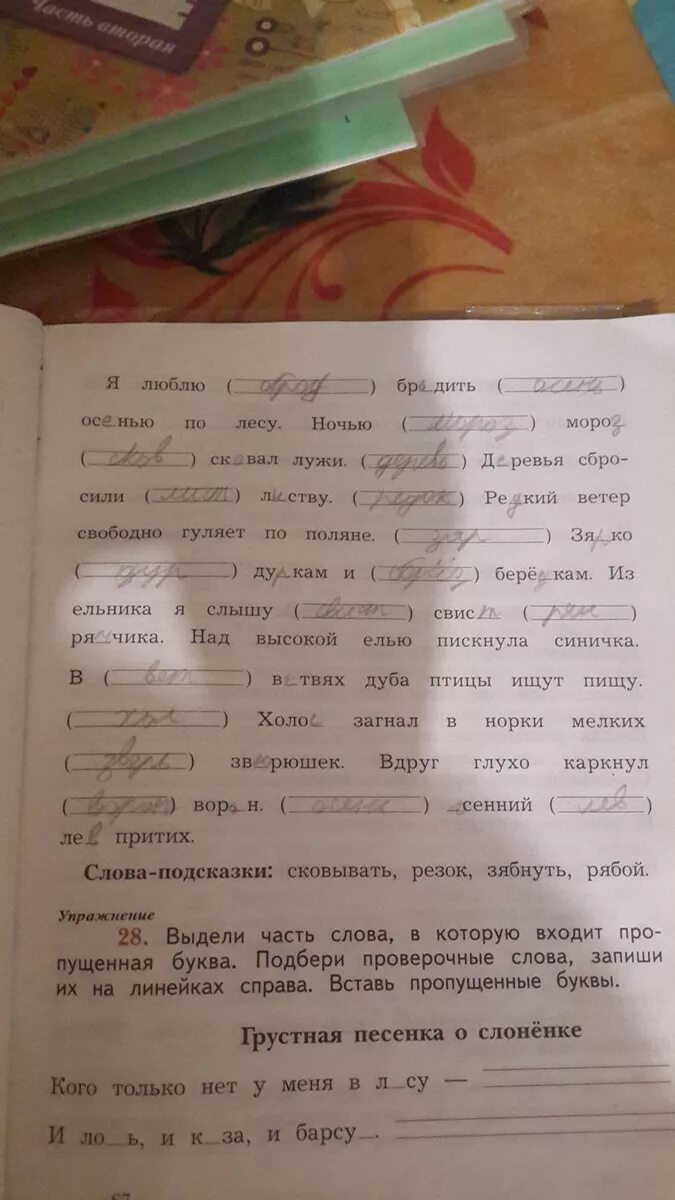 Часть вторая
Я люблю ( ) бродить (осень)
осенью по лесу. Ночью (мороз) мороз
(сков) сковал лужи. (деревь) Деревья сбро-
сили (лист) листву. (редок) Ре кий ветер
свободно гуляет по поляне. (зяр) Зярко
(дур) дуркам и ( ) берё кам. Из
ельника я слышу (свист) свист (рян)
ря чика. Над высокой елью пискнула синичка.
В (вет) ветвях дуба птицы ищут пищу.
( ) Холо загнал в норки мелких
(зверь) зв рюшек. Вдруг глухо каркнул
(ворон) вор н. (осень) сенний (лев)
лев притих.
Слова-подсказки: сковывать, резок, зябнуть, рябой.
Упражнение
28. Выдели часть слова, в которую входит про-
пущенная буква. Подбери проверочные слова, запиши
их на линейках справа. Вставь пропущенные буквы.
Грустная песенка о слонёнке
Кого только нет у меня в л_су —
И ло_ь, и к_за, и барсу_.
67